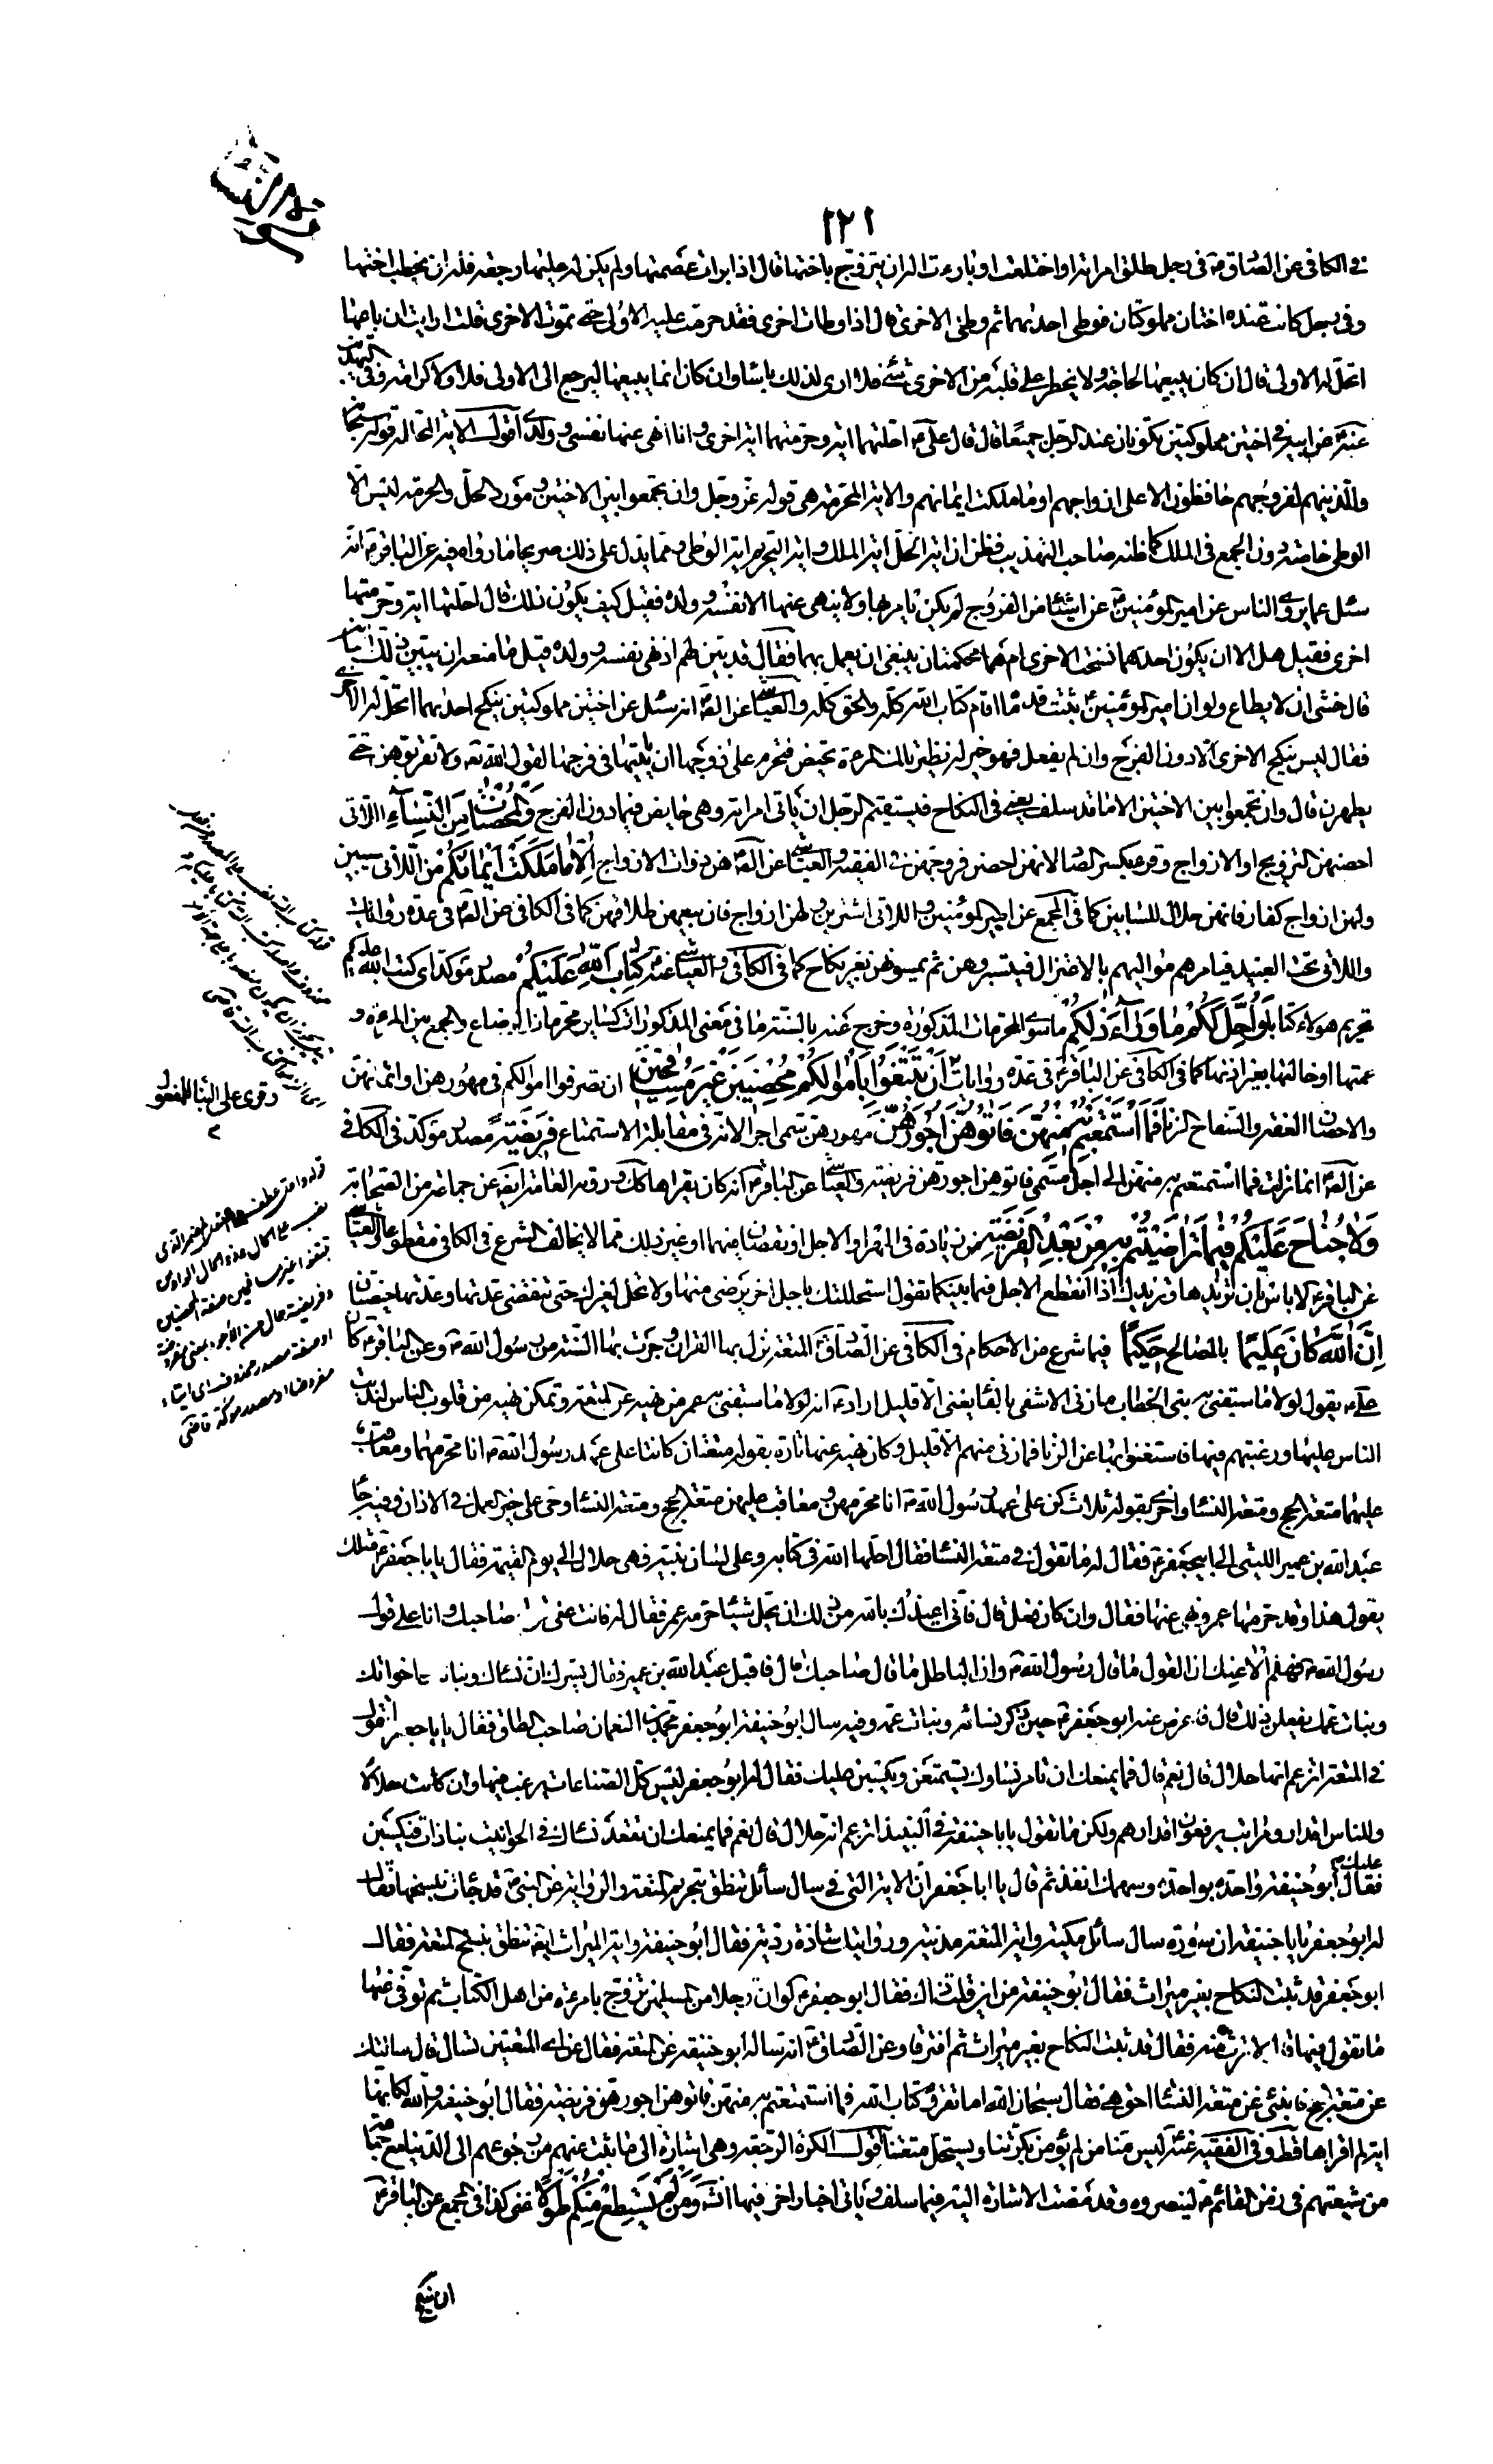 ١٢٢
في الكافي عن الصادق ع في رجل طلق امراته او اختلعت او بارءت اله ان يتزوج باختها قال اذا برات عصمتها ولم يكن له عليها رجعة فله ان يخطب اختها
وفي رجل كانت عنده اختان مملوكتان فوطى احديهما ثم وطئ الاخرى قال اذا وطات اخرى فقد حرمت عليه الاولى حتى تموت الاخرى قلت ارايت ان باعها
اتحل له الاولى قال ان كان يبيعها لحاجة ولا يخطر على قلبه من الاخرى شئ فلا ارى لذلك باسا وان كان انما يبيعها ليرجع الى الاولى فلا ولا كرامة وفي التهذيب
عنه ع عن ابيه في اختين مملوكتين تكونان عند الرجل جميعا قال قال علي ع احلتهما اية وحرمتهما اية اخرى وانا انهى عنها نفسي وولدي اقول الاية المحللة قوله سبحانه
والذينهم لفروجهم حافظون الا على ازواجهم او ما ملكت ايمانهم والاية المحرمة هي قوله عز وجل وان تجمعوا بين الاختين ومورد الحل والحرمة ليس الا
الوطي خاصة دون الجمع في الملك كما ظنه صاحب التهذيب فظن ان اية الحل اية الملك واية التحريم اية الوطي ومما يدل على ذلك صريحا ما رواه فيه عن الباقر ع انه
سئل عما يروي الناس عن امير المؤمنين ع عن اشيئا من الفروج لم يكن يامر بها ولا ينهى عنها الا نفسه وولده فقيل كيف يكون ذلك قال احلتها اية وحرمتها
اخرى فقيل هل الا ان يكون احدهما نسخت الاخرى ام هما محكمتان ينبغي ان يعمل بهما فقال قد بين لهم اذ نهى نفسه وولده قيل ما منعه ان يبين ذلك للناس
قال خشي ان لا يطاع ولو ان امير المؤمنين ع ثبتت قدماه اقام كتاب الله كله والحق كله والعياشي عن الص ع انه سئل عن اختين مملوكتين ينكح احديهما اتحل له الاخرى
فقال ليس ينكح الاخرى الا دون الفرج وان لم يفعل فهو خير له نظير تلك المرءة تحيض فتحرم على زوجها ان ياتيها في فرجها لقول الله تع ولا تقربوهن حتى
يطهرن قال وان تجمعوا بين الاختين الا ما قد سلف يعني في النكاح فيستقيم للرجل ان ياتي امراته وهي حايض فيما دون الفرج والمحصنات من النساء اللاتي
احصنهن التزويج او الازواج وقرء بكسر الصاد لانهن احصن فروجهن في الفقيه والعياشي عن الص ع هن ذوات الازواج الا ما ملكت ايمانكم من اللاتي سبين
ولهن ازواج كفار فانهن حلال للسابين كما في المجمع عن امير المؤمنين ع واللاتي اشترين ولهن ازواج فان بيعهن طلاقهن كما في الكافي عن الص ع في عدة روايات
واللاتي تحت العبيد فيامرهم مواليهم بالاعتزال فيستبرؤهن ثم يمسوهن بغير نكاح كما في الكافي والعياشي عنه ع كتاب الله عليكم مصدر مؤكد اي كتب الله عليكم
تحريم هولاء كتابا واحل لكم ما وراء ذلكم ما سوى المحرمات المذكورة وخرج عنه بالسنة ما في معنى المذكورات كساير محرمات الرضاع والجمع بين المرءة و
عمتها او خالتها بغير اذنها كما في الكافي عن الباقر ع في عدة روايات ان تبتغوا باموالكم محصنين غير مسافحين ان تصرفوا اموالكم في مهورهن او اثمانهن
والاحصان العفة والسفاح الزنا فما استمتعتم به منهن فاتوهن اجورهن مهورهن سمي اجرا لانه في مقابلة الاستمتاع فريضة مصدر مؤكد في الكافي
عن الص ع انما نزلت فما استمتعتم به منهن الى اجل مسمى فاتوهن اجورهن فريضة والعياشي عن الباقر ع انه كان يقراها كك وروته العامة ايضا عن جماعة من الصحابة
ولا جناح عليكم فيما تراضيتم به من بعد الفريضة من زيادة في المهر او الاجل او نقصان فيهما او غير ذلك مما لا يخالف الشرع في الكافي مقطوعا والعياشي
عن الباقر ع لا باس بان تزيدها وتزيدك اذا انقطع الاجل فيما بينكما تقول استحللتك باجل اخر برضى منها ولا تحل لغيرك حتى تنقضي عدتها وعدتها حيضتان
ان الله كان عليما بالمصالح حكيما فيما شرع من الاحكام في الكافي عن الصادق ع المتعة نزل بها القران وجرت بها السنة من رسول الله ص وعن الباقر ع كان
علي ع يقول لولا ما سبقني به بنى الخطاب ما زنى الا شفى بالفا يعني الا قليل اراد انه لولا ما سبقني به عمر من نهيه عن المتعة وتمكن نهيه من قلوب الناس لندبت
الناس عليها ورغبتهم فيها فاستغنوا بها عن الزنا فما زنى منهم الا قليل وكان نهيه عنها تارة بقوله متعتان كانتا على عهد رسول الله ص انا محرمهما ومعاقب
عليهما متعة الحج ومتعة النساء واخرى بقوله ثلاث كن على عهد رسول الله ص انا محرمهن ومعاقب عليهن متعة الحج ومتعة النساء وحي على خير العمل في الاذان وفيه جاء
عبد الله بن عمير الليثي الى ابي جعفر ع فقال له ما تقول في متعة النساء فقال احلها الله في كتابه وعلى لسان نبيه فهي حلال الى يوم القيمة فقال يا با جعفر مثلك
يقول هذا وقد حرمها عمر ونهى عنها فقال وان كان فعل قال فاني اعيذك بالله من ذلك ان تحل شيئا حرمه عمر فقال له فانت على قول صاحبك وانا على قول
رسول الله ص فهلم الاعنك ان القول ما قال رسول الله ص وان الباطل ما قال صاحبك قال فاقبل عبد الله بن عمير فقال يسرك ان نساءك وبناتك واخواتك
وبنات عمك يفعلن ذلك قال فاعرض عنه ابو جعفر ع حين ذكر نساءه وبنات عمه وفيه سال ابو حنيفة ابو جعفر محمد بن النعمان صاحب الطاق فقال يا با جعفر ما تقول
في المتعة اتزعم انها حلال قال نعم قال فما يمنعك ان تامر نساءك يستمتعن ويكتسبن عليك فقال له ابو جعفر ليس كل الصناعات يرغب فيها وان كانت حلالا
وللناس اقدار ومراتب يرفعون اقدارهم ولكن ما تقول يا با حنيفة في النبيذ اتزعم انه حلال قال نعم قال فما يمنعك ان تقعد نساءك في الحوانيت نباذات فيكسبن
عليك
فقال ابو حنيفة واحدة بواحدة وسهمك انفذ ثم قال يا ابا جعفر ان الاية التي في سال سائل تنطق بتحريم المتعة والرواية عن النبي ص قد جاءت بنسخها فقال
له ابو جعفر يا با حنيفة ان سورة سال سائل مكية واية المتعة مدنية وروايتك شاذة ردية فقال ابو حنيفة واية الميراث ايضا تنطق بنسخ المتعة فقال
ابو جعفر قد ثبت النكاح بغير ميراث فقال ابو حنيفة من اين قلت ذاك فقال ابو جعفر لو ان رجلا من المسلمين تزوج بامرءة من اهل الكتاب ثم توفي عنها
ما تقول فيها قال لا ترث منه فقال قد ثبت النكاح بغير ميراث ثم افترقا وعن الصادق ع انه ساله ابو حنيفة عن المتعة فقال عن اي المتعتين تسال قال سالتك
عن متعة الحج فانبئني عن متعة النساء احق هي فقال سبحان الله اما تقرء كتاب الله فما استمتعتم به منهن فاتوهن اجورهن فريضة فقال ابو حنيفة والله لكانها
اية لم اقراها قط وفي الفقيه عنه ع ليس منا من لم يؤمن بكرتنا ويستحل متعتنا اقول الكرة الرجعة وهي اشارة الى ما ثبت عنهم من رجوعهم الى الدنيا مع جماعة
من شيعتهم في زمن القائم ع لينصروه وقد مضت الاشارة اليه فيما سلف وياتي اخبار اخر فيها انش ومن لم يستطع منكم طولا غنى كذا في المجمع عن الباقر ع
ان ينكح
وقرئ على البناء للمفعول